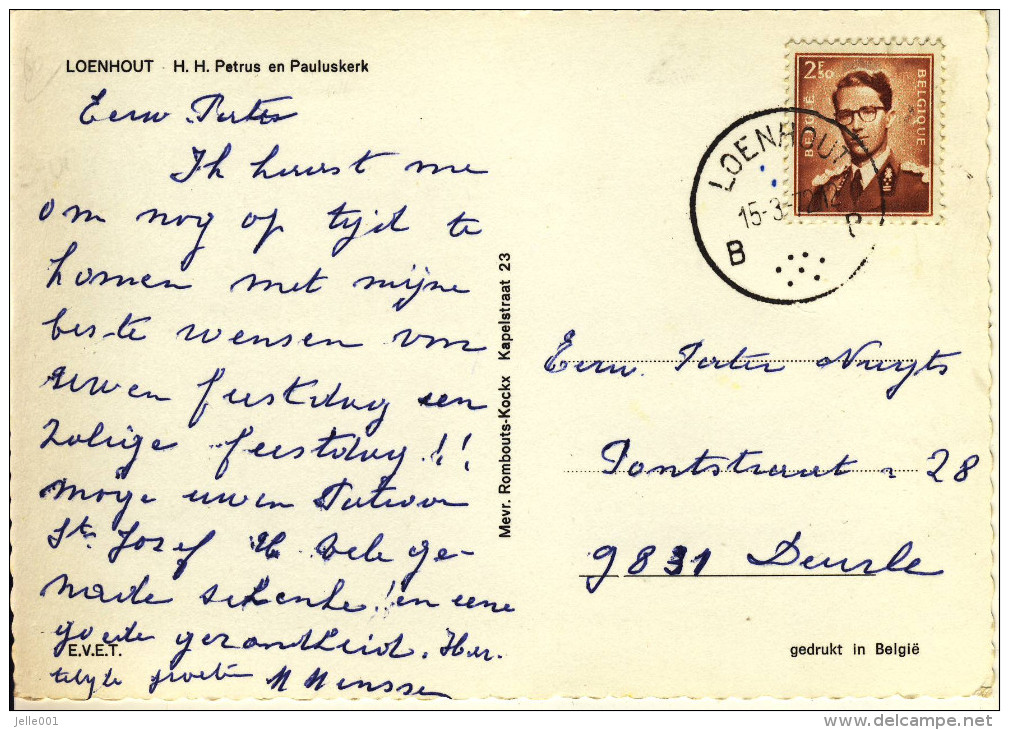 LOENHOUT H. H. Petrus en Pauluskerk
Eerw. Pater
Ik haast me
om nog op tijd te
komen met mijne
beste wensen voor
uwen feestdag een
zalige feestdag!!
Moge uwen Patroon
St. Jozef U vele ge-
nade schenke! en eene
goede gezondheid. Har-
telijke groeten M Menssen
E.V.E.T.
Mevr. Rombouts-Kockx Kapelstraat 23
2F50
BELGIË BELGIQUE
LOENHOUT
15-3-72 12
B
Eerw. Pater Nuyts
Pontstraat 28
9831 Deurle
gedrukt in België
jelle001
delcampe.net